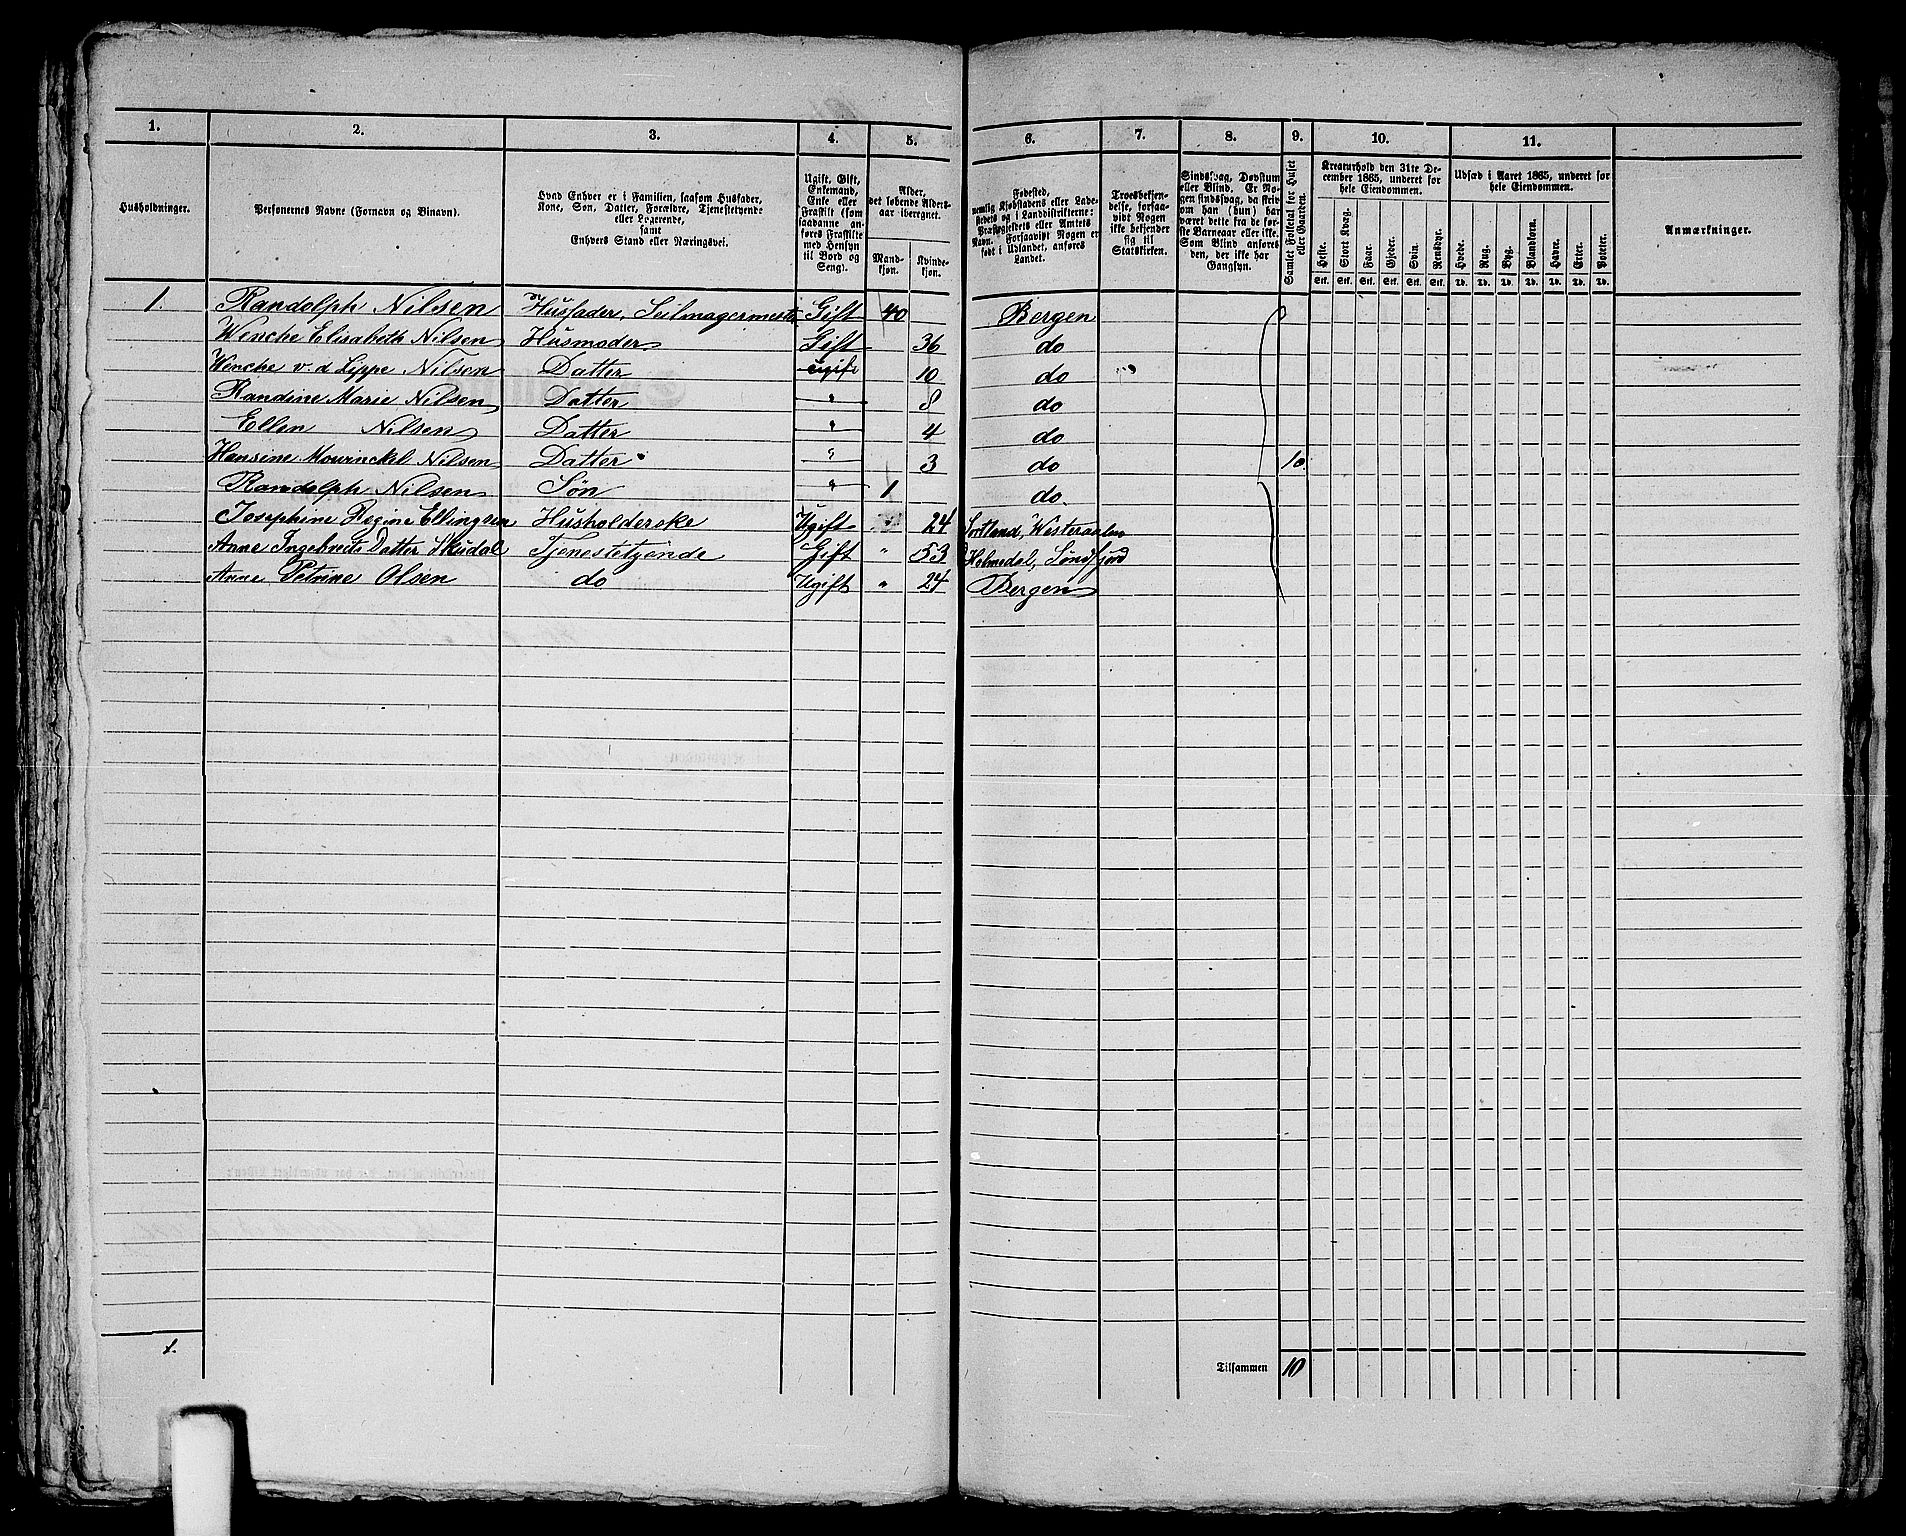 1. 2. 3. 4. 5. 6. 7. 8. 9. 10. 11.
Husholdninger.
Personernes Navne (Fornavn og Binavn).
Hvad Enhver er i Familien, saasom Husfader,
Kone, Søn, Datter, Forældre, Tjenestetyende
eller Logerende,
samt
Enhvers Stand eller Næringsvei.
Ugift, Gift,
Enkemand,
Enke eller
Fraskilt (som
saadanne an-
føres Fraskilte
med Hensyn
til Bord og
Seng).
Alder,
det løbende Alders-
aar iberegnet.
Mand-
kjøn.
Kvinde-
kjøn.
Fødested,
nemlig Kjøbstadens eller Lade-
stedets og i Landdistrikterne:
Præstegjeldets eller Amtets
Navn. Forsaavidt Nogen er
født i Udlandet, anføres
Landet.
Troesbekjen-
delse, forsaa-
vidt Nogen
ikke bekjender
sig til
Statskirken.
Sindssvag, Døvstum
eller Blind. Er No-
gen sindssvag, da skriv
om han (hun) har
været dette fra de før-
ste Barneaar eller ikke.
Som Blind anføres
den, der ikke har
Gangsyn.
Samlet Folketal for Huset
eller Gaarden.
Kreaturhold den 31te De-
cember 1865, underet for
hele Eiendommen.
Heste. Stort Kvæg. Faar. Gjeder. Svin. Rensdyr.
Stk. Stk. Stk. Stk. Stk. Stk.
Udsæd i Aaret 1865, underet for
hele Eiendommen.
Hvede. Rug. Byg. Blandkorn. Havre. Erter. Poteter.
Td. Td. Td. Td. Td. Td. Td.
Anmærkninger.
1. Randolph Nilsen Husfader, Seilmagermester Gift 40 Bergen
Wenche Elisabeth Nilsen Husmoder Gift 36 do
Wenche v. d Lippe Nilsen Datter ugift 10 do
Randine Marie Nilsen Datter " 8 do
Ellen Nilsen Datter " 4 do
Hansine Mowinckel Nilsen Datter " 3 do 10.
Randolph Nilsen Søn " 1 do
Josephine Regine Ellingsen Husholderske Ugift 24 Sortland, Westeraalen
Anne Ingebrets Datter Skudal Tjenestetyende Gift " 53 Holmedal, Søndfjord
Anne Petrine Olsen do Ugift " 24 Bergen
1.
Tilsammen 10